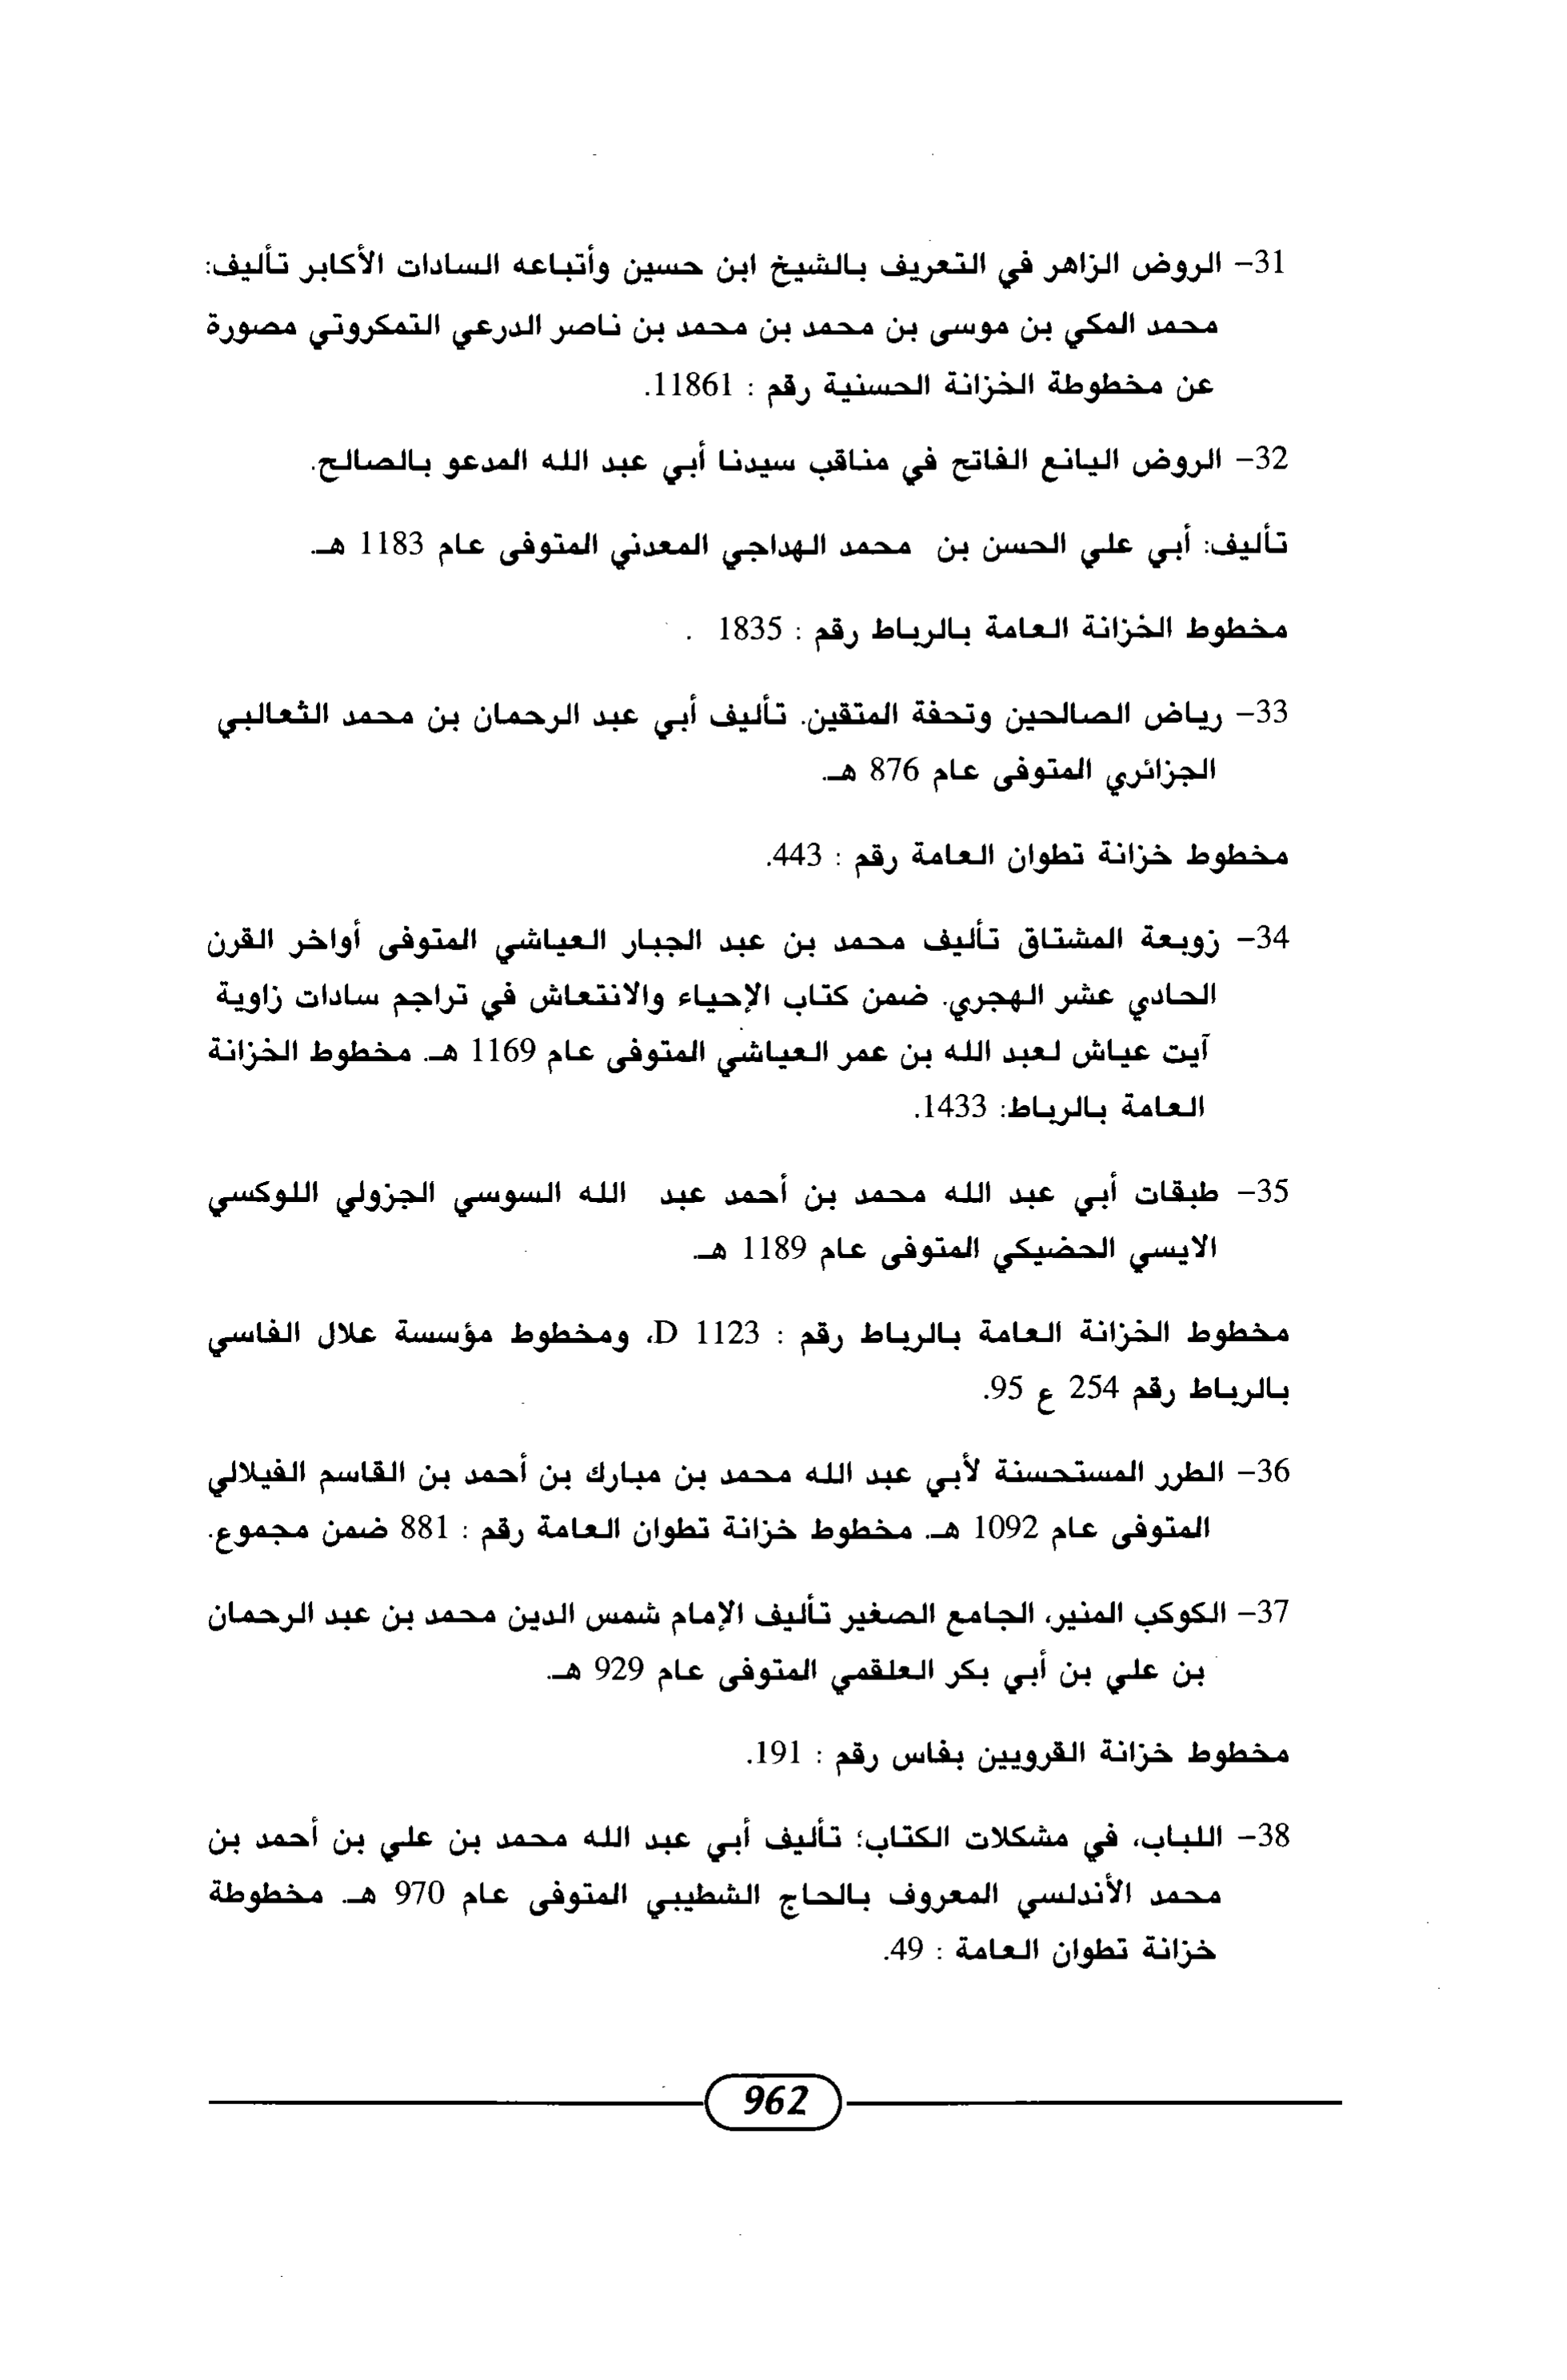 31- الروض الزاهر في التعريف بالشيخ ابن حسين وأتباعه السادات الأكابر تأليف:
محمد المكي بن موسى بن محمد بن محمد بن ناصر الدرعي التمكروتي مصورة
عن مخطوطة الخزانة الحسنية رقم : 11861.
32- الروض اليانع الفاتح في مناقب سيدنا أبي عبد الله المدعو بالصالح.
تأليف: أبي علي الحسن بن محمد الهداجي المعدني المتوفى عام 1183 هـ.
مخطوط الخزانة العامة بالرباط رقم : 1835 .
33- رياض الصالحين وتحفة المتقين. تأليف أبي عبد الرحمان بن محمد الثعالبي
الجزائري المتوفى عام 876 هـ.
مخطوط خزانة تطوان العامة رقم : 443.
34- زوبعة المشتاق تأليف محمد بن عبد الجبار العياشي المتوفى أواخر القرن
الحادي عشر الهجري. ضمن كتاب الإحياء والانتعاش في تراجم سادات زاوية
آيت عياش لعبد الله بن عمر العياشي المتوفى عام 1169 هـ. مخطوط الخزانة
العامة بالرباط: 1433.
35- طبقات أبي عبد الله محمد بن أحمد عبد الله السوسي الجزولي اللوكسي
الايسي الحضيكي المتوفى عام 1189 هـ.
مخطوط الخزانة العامة بالرباط رقم : 1123 D، ومخطوط مؤسسة علال الفاسي
بالرباط رقم 254 ع 95.
36- الطرر المستحسنة لأبي عبد الله محمد بن مبارك بن أحمد بن القاسم الفيلالي
المتوفى عام 1092 هـ. مخطوط خزانة تطوان العامة رقم : 881 ضمن مجموع.
37- الكوكب المنير، الجامع الصغير تأليف الإمام شمس الدين محمد بن عبد الرحمان
بن علي بن أبي بكر العلقمي المتوفى عام 929 هـ.
مخطوط خزانة القرويين بفاس رقم : 191.
38- اللباب، في مشكلات الكتاب؛ تأليف أبي عبد الله محمد بن علي بن أحمد بن
محمد الأندلسي المعروف بالحاج الشطيبي المتوفى عام 970 هـ. مخطوطة
خزانة تطوان العامة : 49.
962